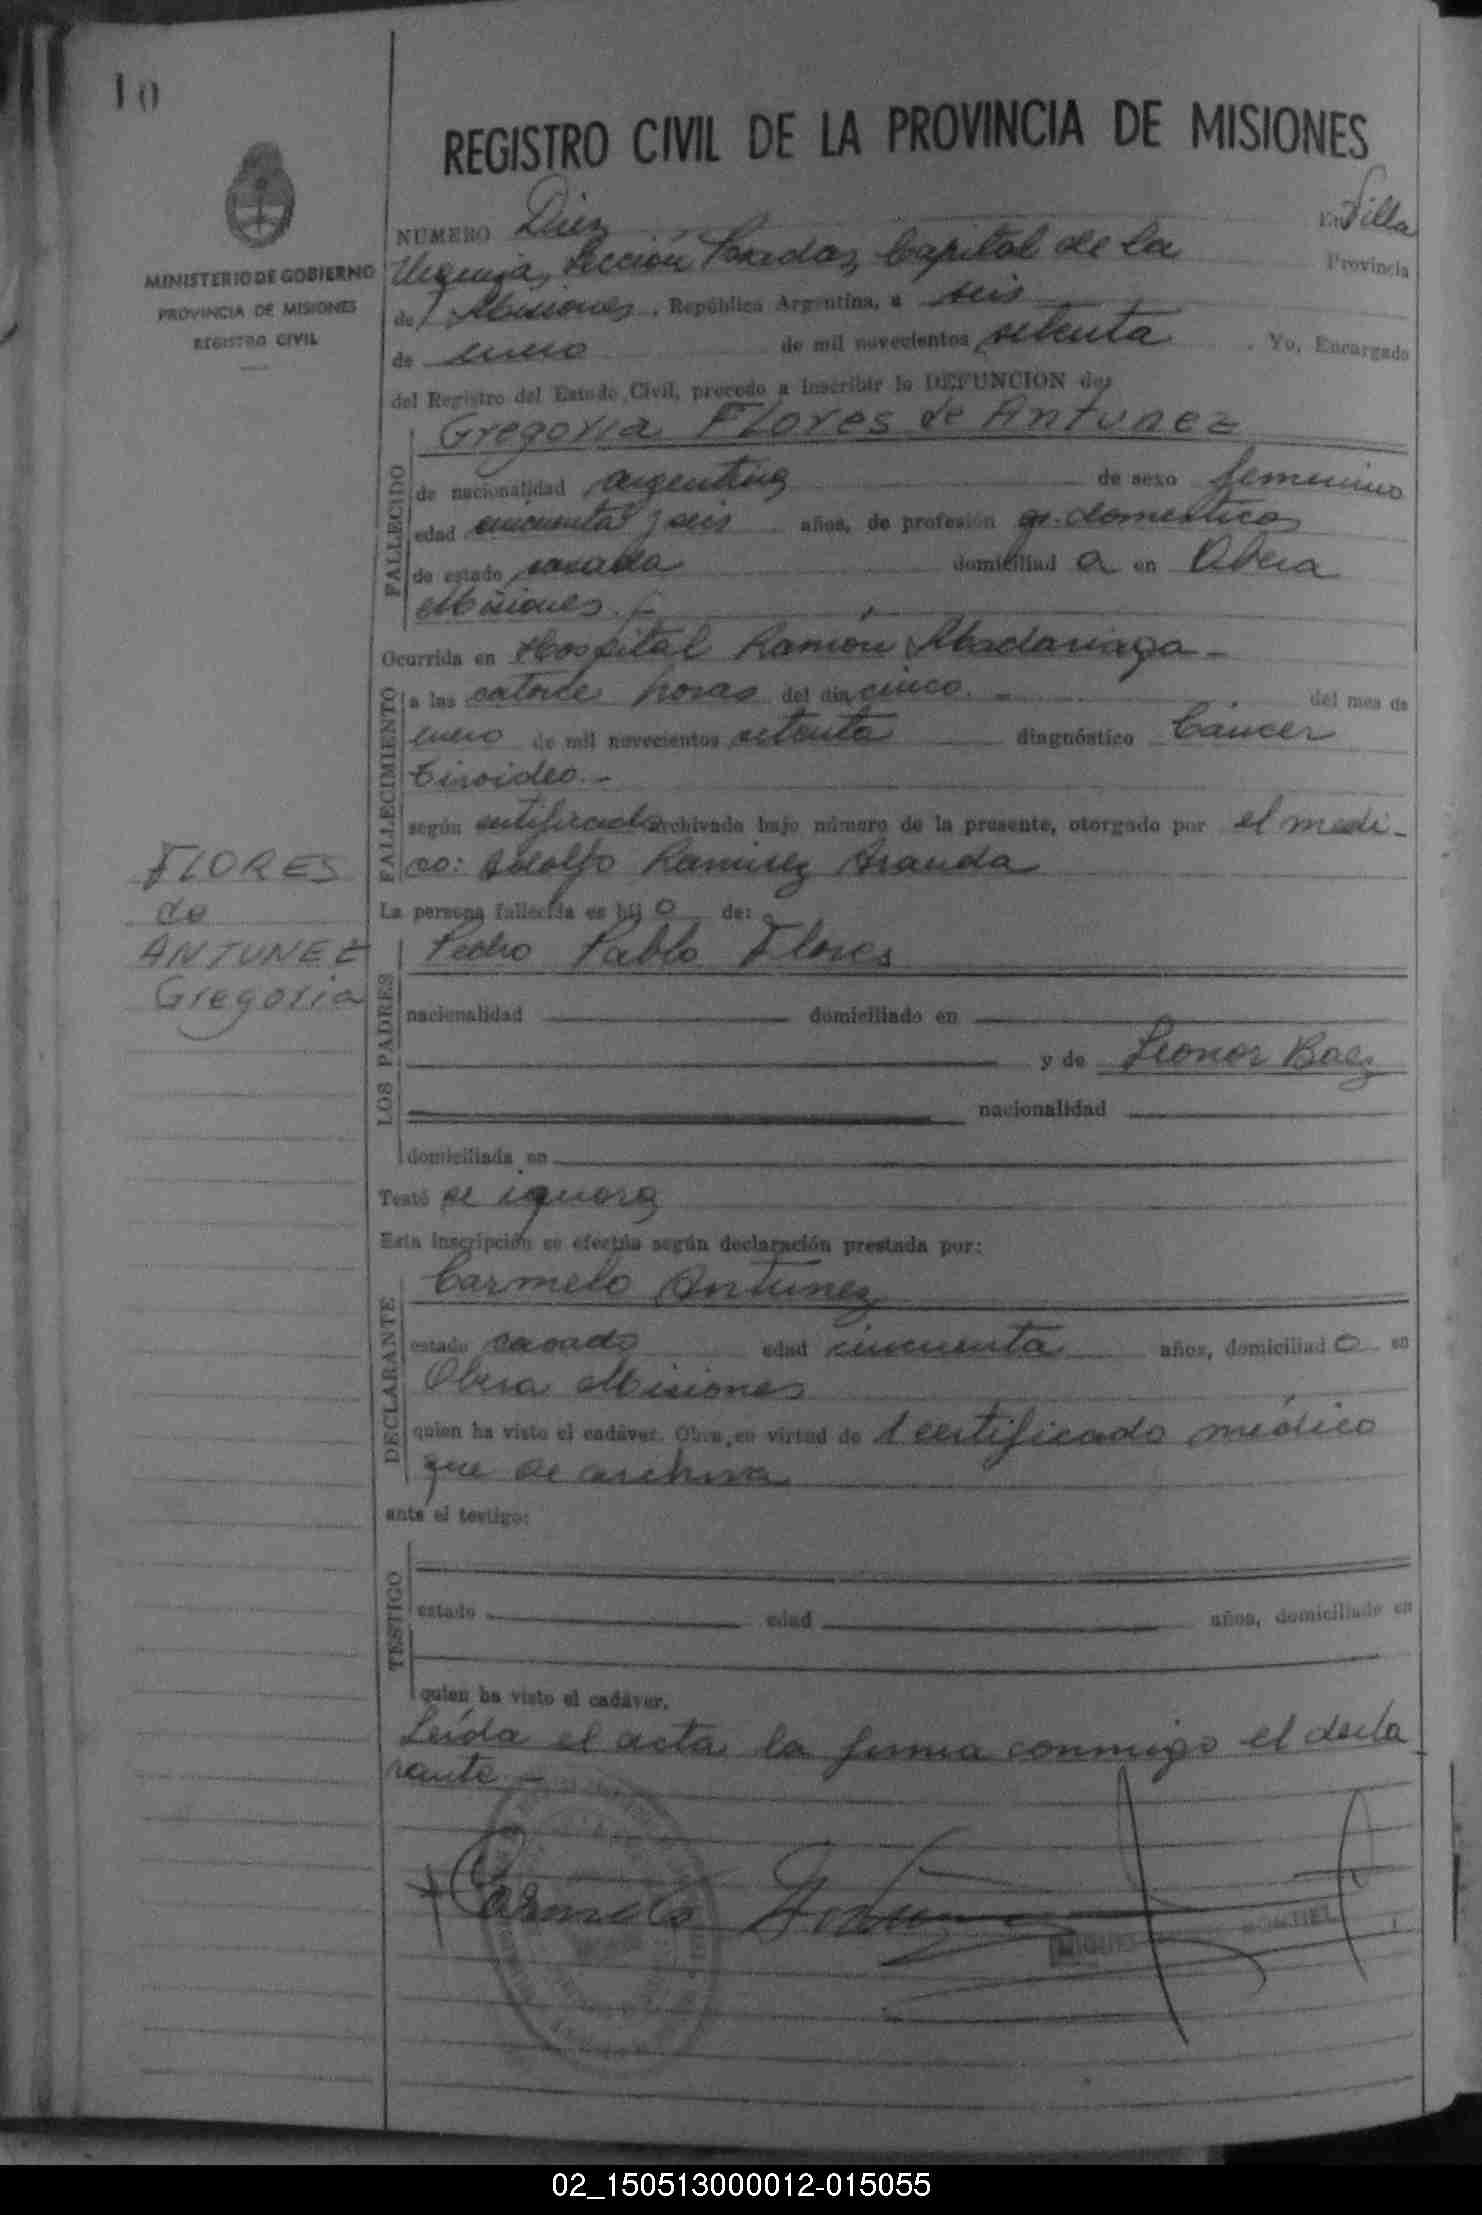 10
REGISTRO CIVIL DE LA PROVINCIA DE MISIONES
MINISTERIO DE GOBIERNO
PROVINCIA DE MISIONES
REGISTRO CIVIL
NUMERO Diez En Villa
Urquiza, Sección Posadas, Capital de la Provincia
de Misiones, República Argentina, a seis
de enero de mil novecientos setenta. Yo, Encargado
del Registro del Estado Civil, procedo a inscribir la DEFUNCION de:
FALLECIDO
Gregoria Flores de Antunez
de nacionalidad argentina de sexo femenino
edad cincuenta y seis años, de profesión q. domesticos
de estado casada domiciliad a en Obera
Misiones.
Ocurrida en Hospital Ramón Madariaga -
FALLECIMIENTO
a las catorce horas del día cinco. - del mes de
enero de mil novecientos setenta diagnóstico Cáncer
tiroideo. -
según certificado archivado bajo número de la presente, otorgado por el medi-
co: Adolfo Ramirez Aranda
FLORES
de
ANTUNEZ
Gregoria
La persona fallecida es hij o de:
LOS PADRES
Pedro Pablo Flores
nacionalidad domiciliado en
y de Leonor Baez
nacionalidad
domiciliada en
Testó se ignora
Esta inscripción se efectúa según declaración prestada por:
DECLARANTE
Carmelo Antunez
estado casado edad cincuenta años, domiciliad o en
Obera Misiones
quien ha visto el cadáver. Obra en virtud de 1 certificado médico
que se archiva
ante el testigo:
TESTIGO
estado edad años, domiciliado en
quien ha visto el cadáver.
Leída el acta la firma conmigo el decla
rante. -
Carmelo Antunez
MIGUEL MONTIEL
02_150513000012-015055